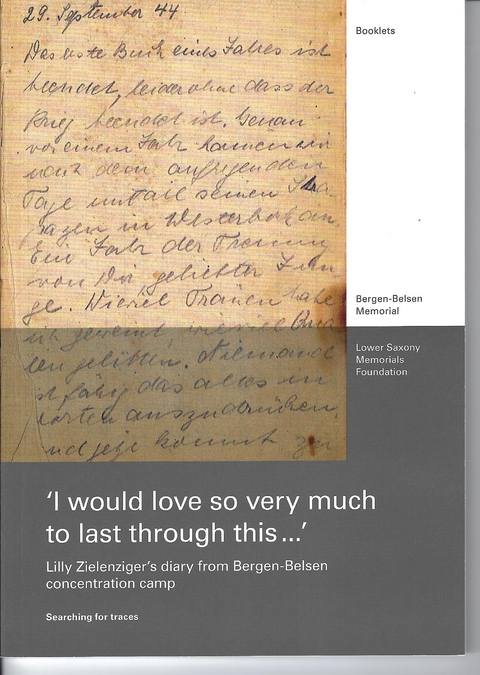 29. September 44
Das erste Buch eines Jahres ist
beendet, leider ohne dass der
Krieg beendet ist. Genau
vor einem Jahr kamen wir
nach dem aufregenden
Tage mit all seinen
in Westerbork an.
Ein Jahr der Trennung
von Dir geliebter Jun-
ge. Wieviel Tränen habe
ich geweint, wieviel Qua-
len gelitten. Niemand
ist fähig das alles in
Worten auszudrücken,
und jetzt kommt
Booklets
Bergen-Belsen
Memorial
Lower Saxony
Memorials
Foundation
‘I would love so very much
to last through this ...’
Lilly Zielenziger’s diary from Bergen-Belsen
concentration camp
Searching for traces